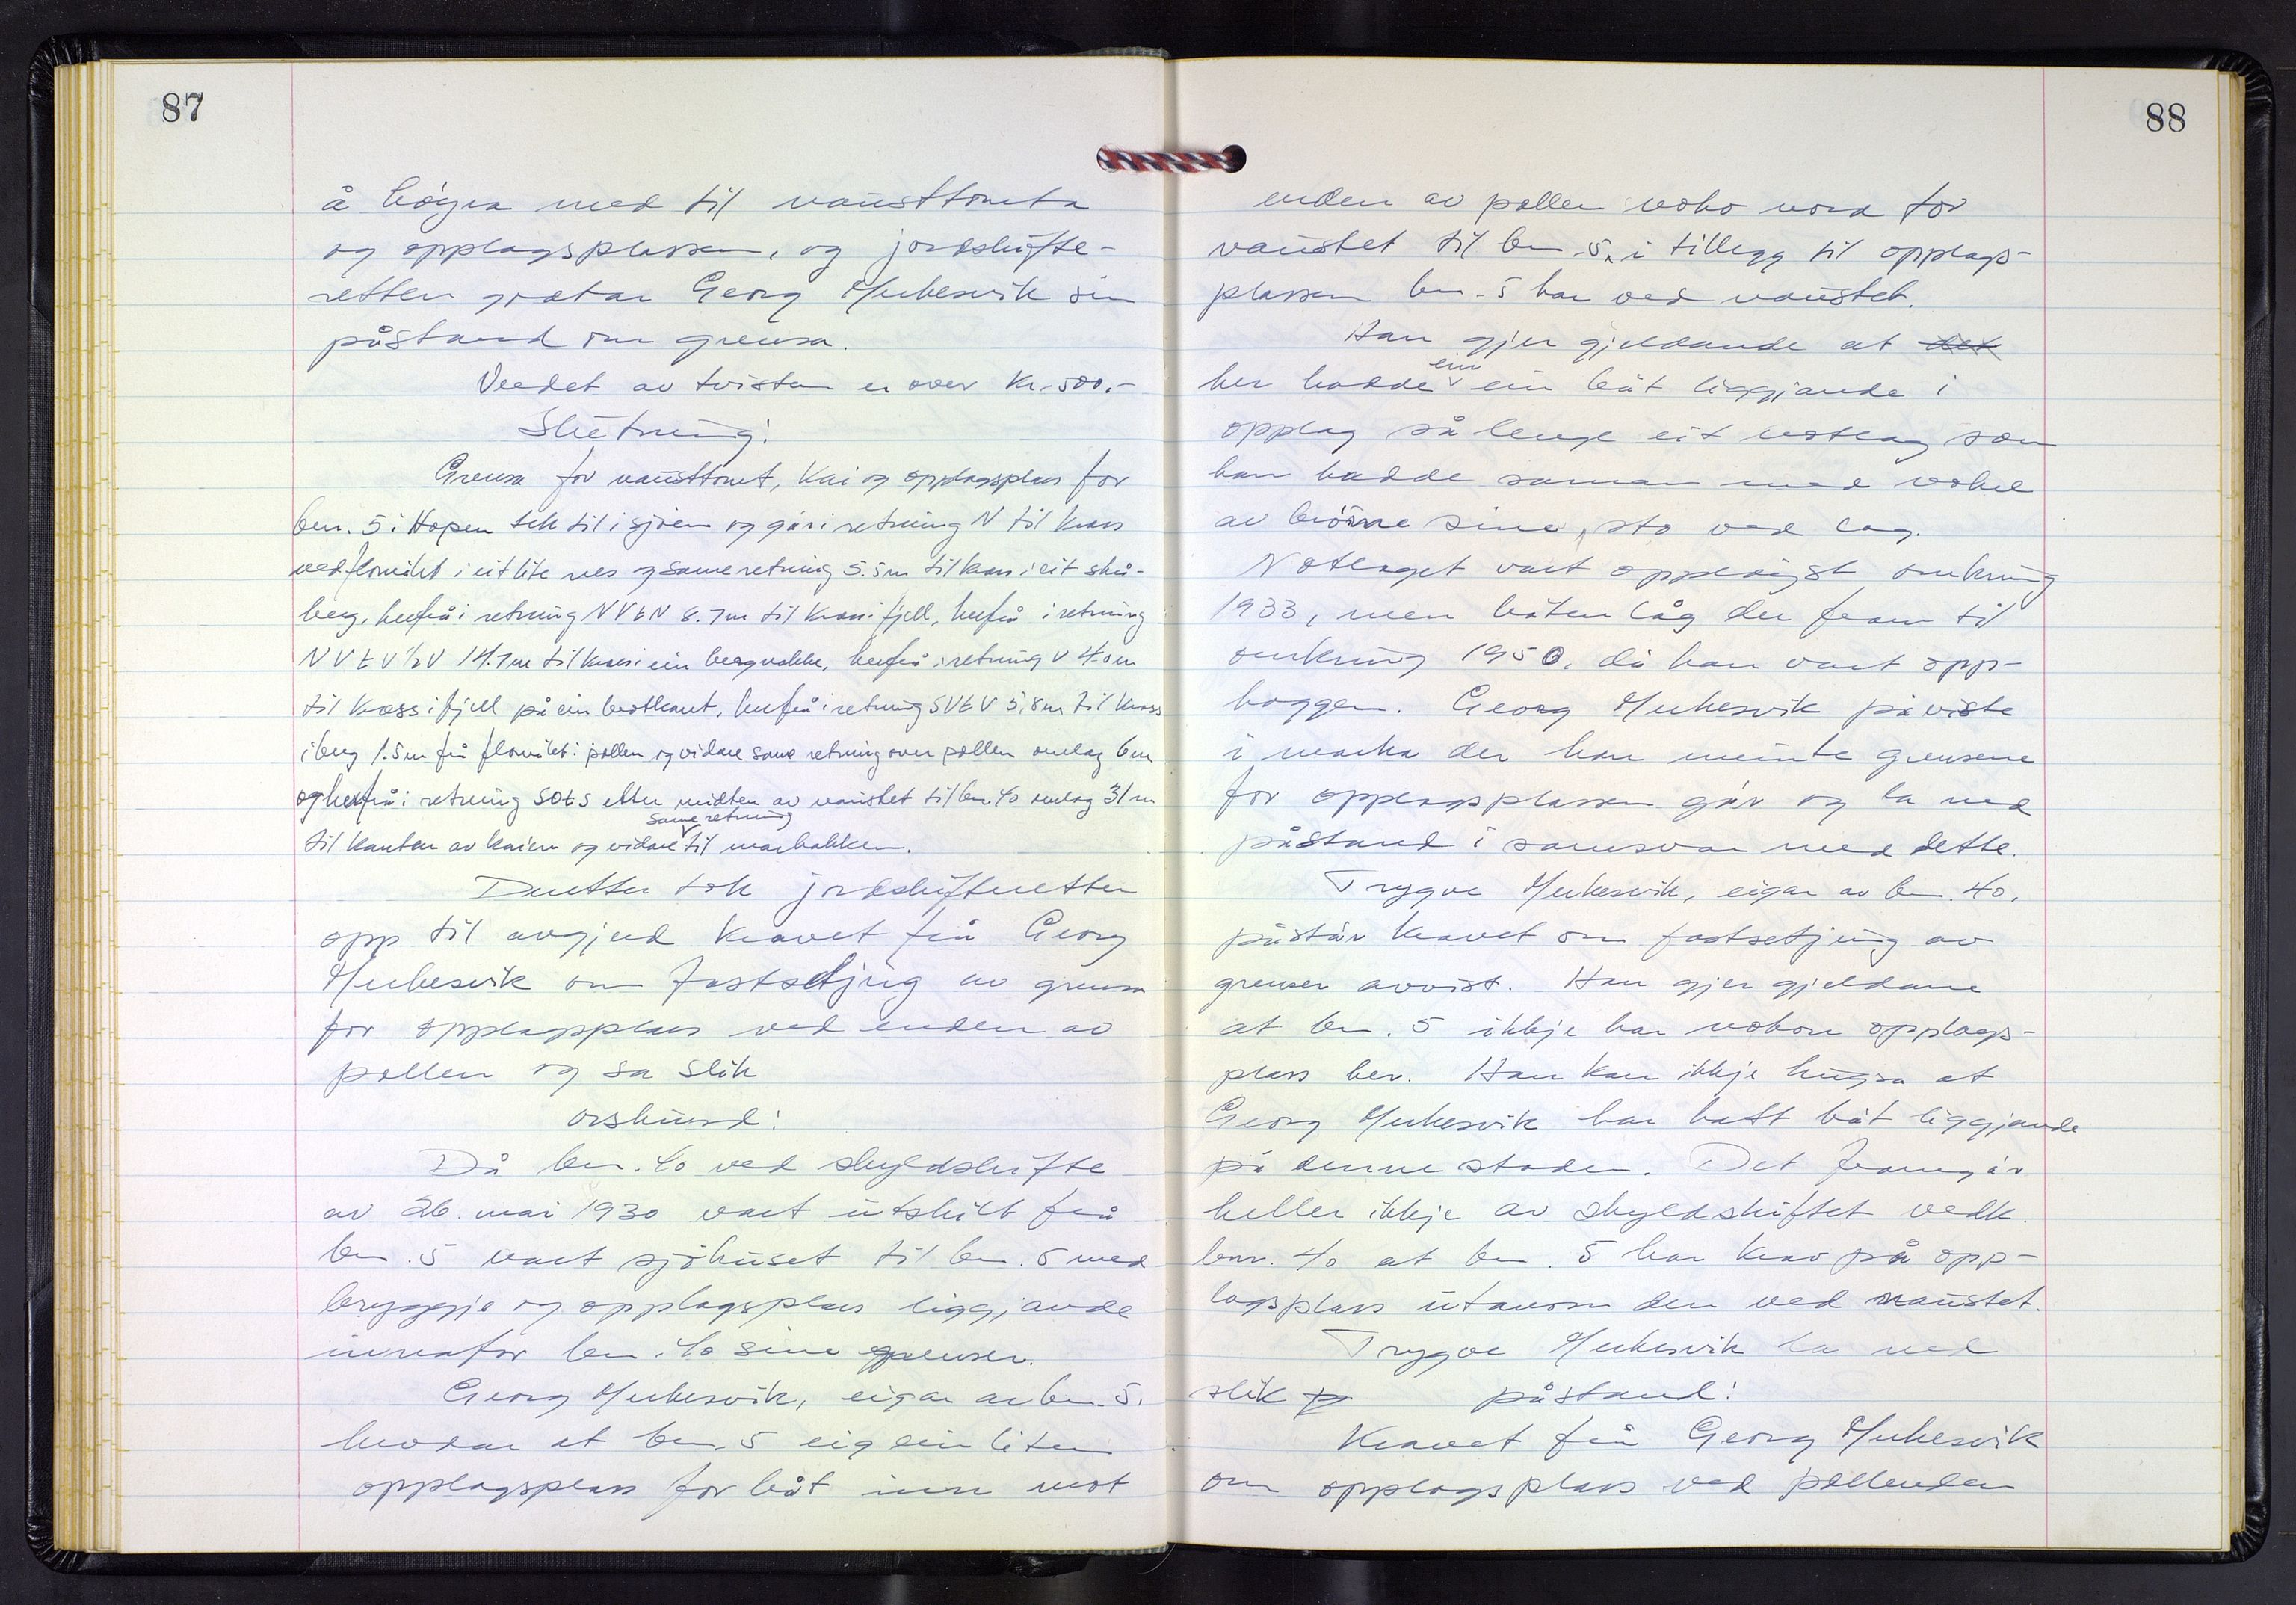 87
å høyra med til nausttomta
og opplagsplassen, og jordskifte-
retten godtar Georg Myhesvik sin
påstand om grensa.
Verdet av tvisten er over kr. 500.-
Slutning:
Grensa for nausttomt, kai og opplagsplass for
bnr. 5 i Hopen tek til i sjøen og går i retning N til kross
ved flomålet i eit lite nes og same retning 5.5m til kross i eit skå-
berg, herfrå i retning NVtN 8.7m til kross i fjell, herfrå i retning
NVtV½V 14.7m til kross i ein bergnakke, herfrå i retning V 4.0m
til kross i fjell på ein brottkant, herfrå i retning SVtV 5,8m til kross
i berg 1.5m frå flomålet i pollen og vidare same retning over pollen omlag 6m
og herfrå i retning SOtS etter midten av naustet til bnr. 40 omlag 31m
til kanten av kaien og vidare same retning til marbakken.
Deretter tok jordskifteretten
opp til avgjerd kravet frå Georg
Myhesvik om fastsetjing av grensa
for opplagsplass ved enden av
pollen og sa slik
orskurd:
Då bnr. 40 ved skyldskifte
av 26. mai 1930 vart utskilt frå
bnr. 5 vart sjøhuset til bnr. 5 med
bryggje og opplagsplass liggjande
innafor bnr. 40 sine grenser.
Georg Myhesvik, eigar av bnr. 5.
hevdar at bnr. 5 eig ein liten
opplagsplass for båt inn mot
88
enden av pollen noko nord for
naustet til bnr. 5, i tillegg til opplags-
plassen bnr. 5 har ved naustet.
Han gjer gjeldande at det
her hadde ein ein båt liggjande i
opplag så lenge eit notlag som
han hadde saman med nokre
av brørne sine, sto ved lag.
Notlaget vart oppløyst omkring
1933, men båten låg der fram til
omkring 1950, då han vart opp-
hoggen. Georg Myhesvik påviste
i marka der han meinte grensene
for opplagsplassen går og la ned
påstand i samsvar med dette.
Trygve Myhesvik, eigar av bnr. 40,
påstår kravet om fastsetjing av
grenser avvist. Han gjer gjeldane
at bnr. 5 ikkje har nokon opplags-
plass her. Han kan ikkje hugsa at
Georg Myhesvik har hatt båt liggjande
på denne staden. Det framgår
heller ikkje av skyldskiftet vedk.
bnr. 40 at bnr. 5 har krav på opp-
lagsplass utanom den ved naustet.
Trygve Myhesvik la ned
slik påstand:
Kravet frå Georg Myhesvik
om opplagsplass ved pollenden